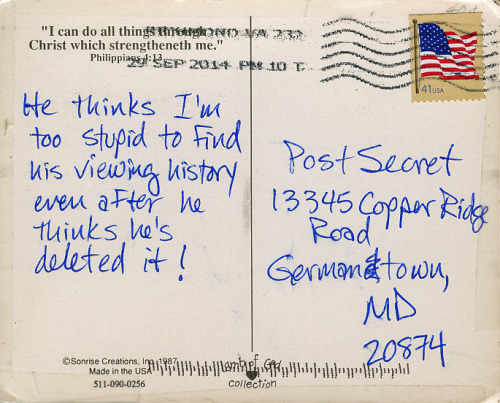 "I can do all things through
Christ which strengtheneth me."
Philippians 4:13
RICHMOND VA 232
29 SEP 2014 PM 10 T
41 USA
He thinks I'm
too stupid to find
his viewing history
even after he
thinks he's
deleted it!
Post Secret
13345 Copper Ridge
Road
Germantown,
MD
20874
©Sonrise Creations, Inc. 1987
Made in the USA
511-090-0256
Lamb of God
collection